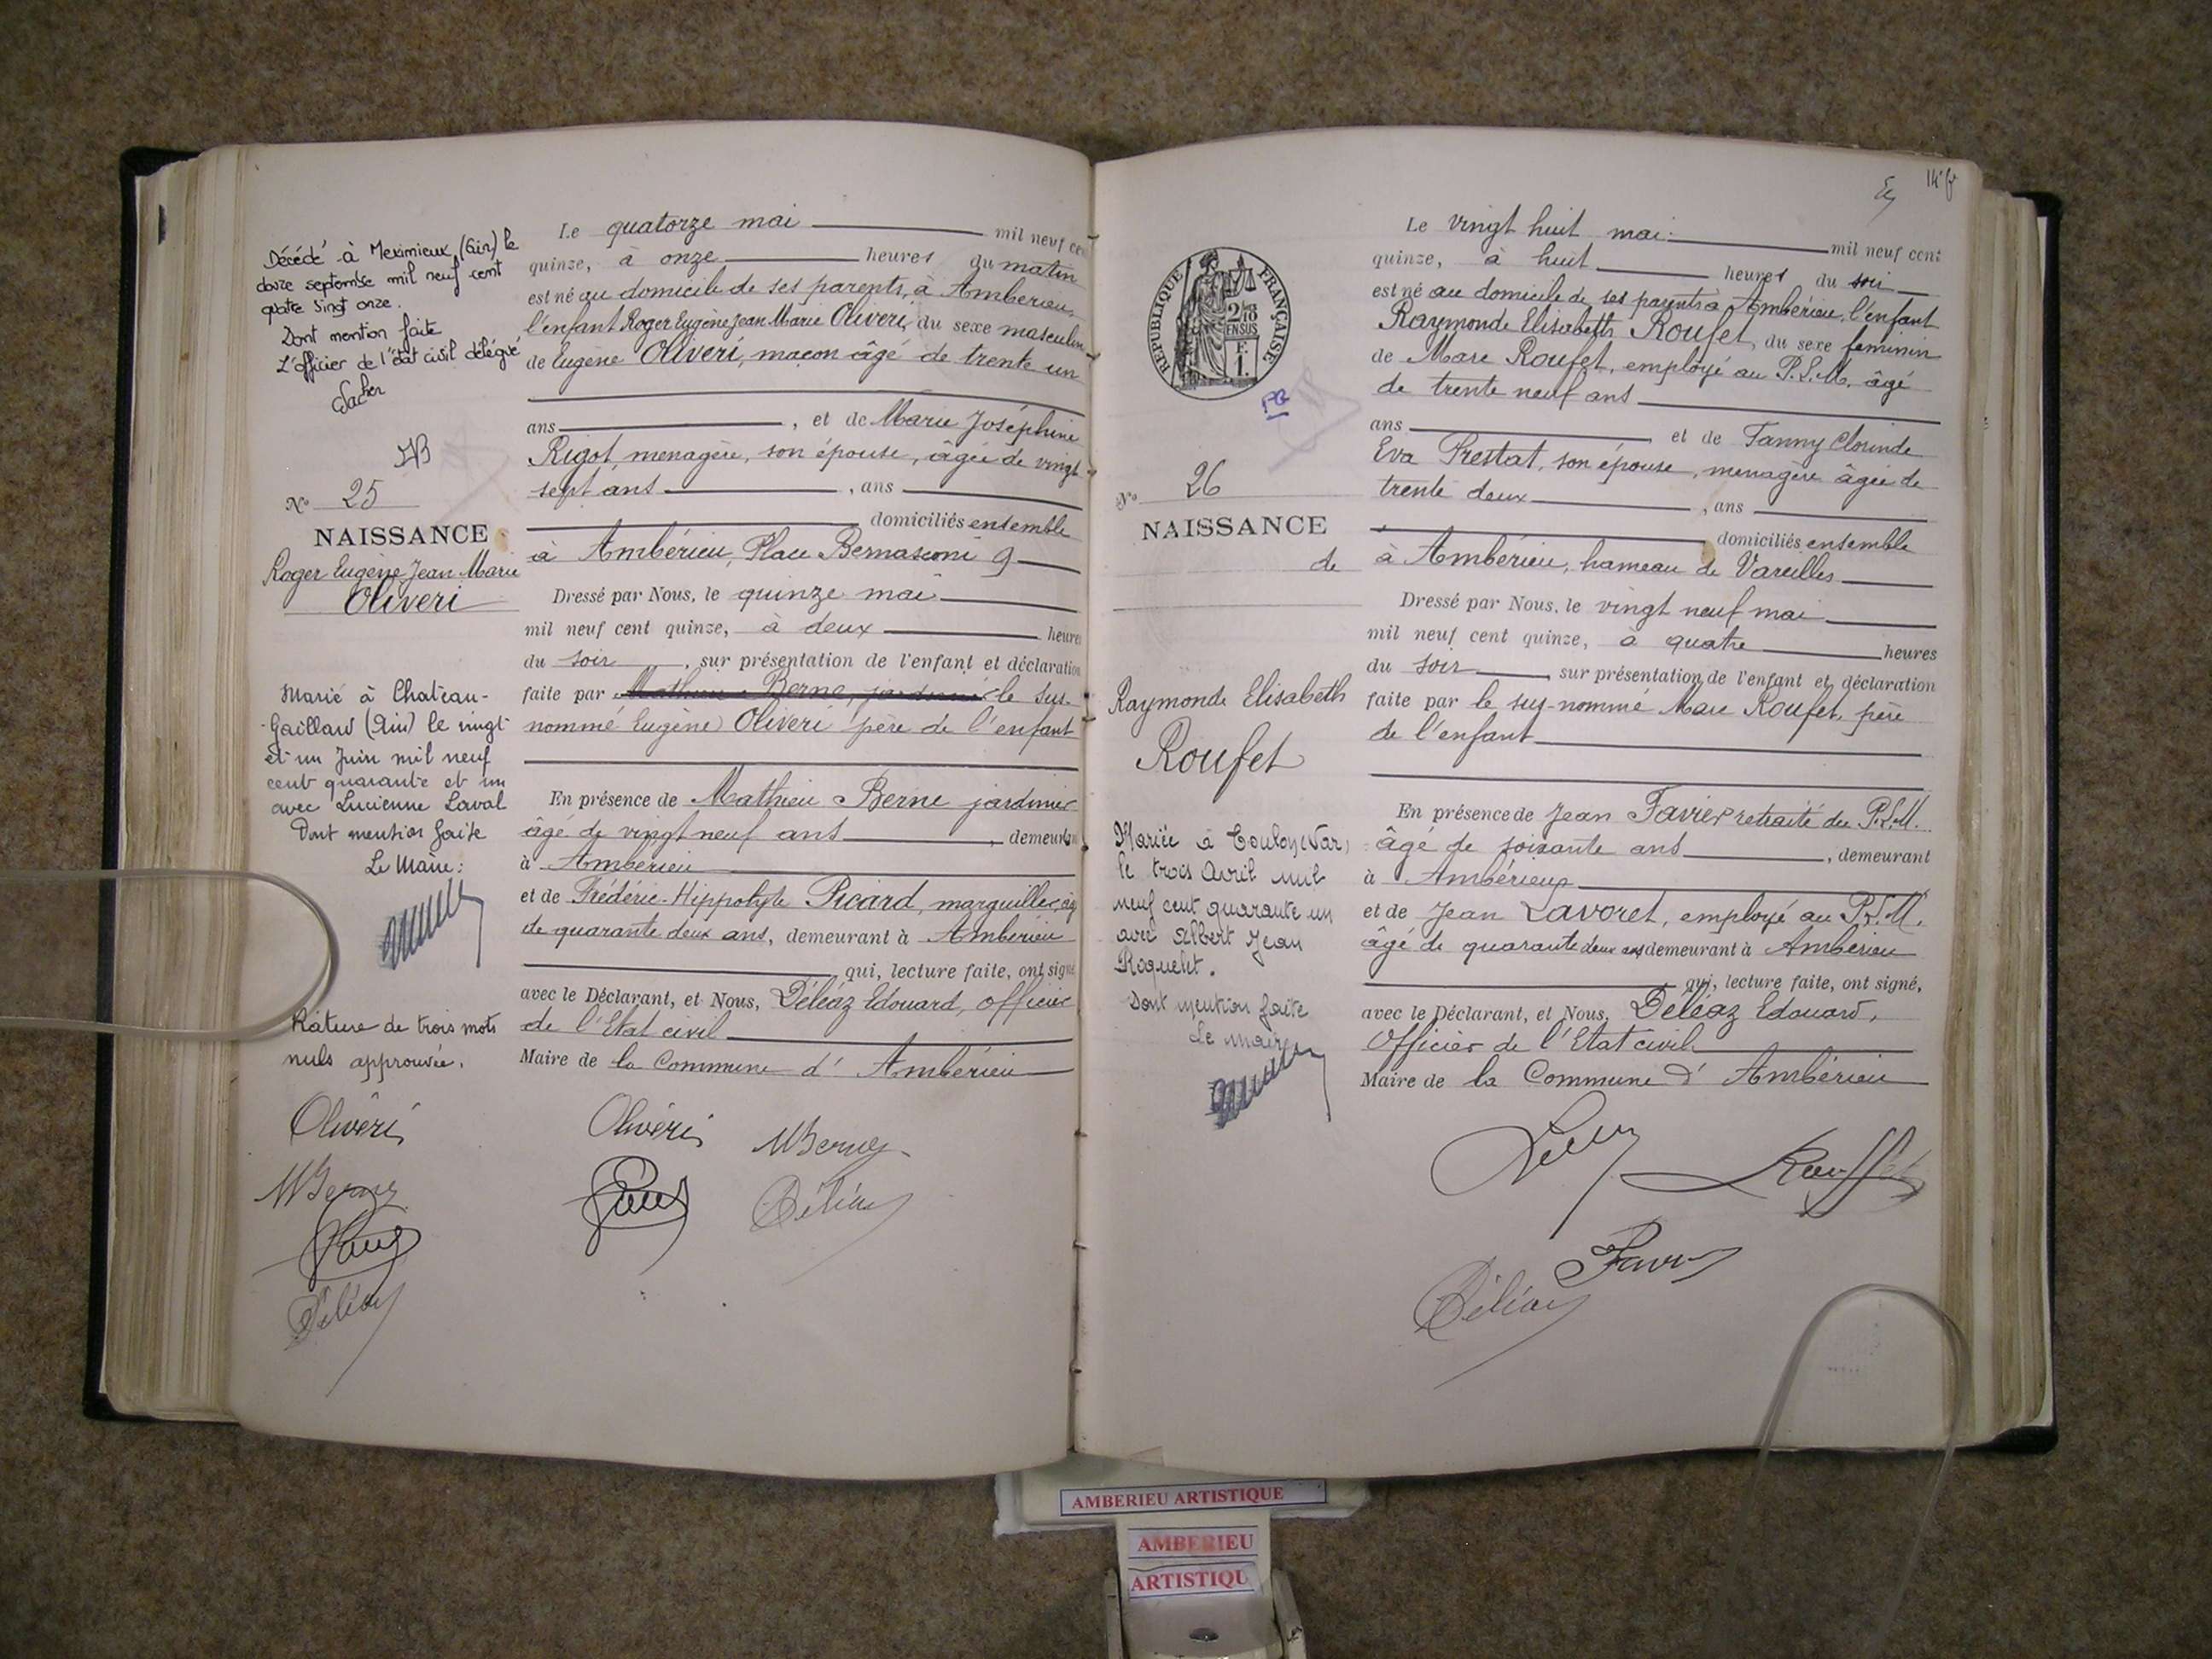 Décédé à Meximieux (Ain) le
douze septembre mil neuf cent
quatre vingt onze.
Dont mention faite
L'officier de l'état civil délégué
N° 25
NAISSANCE
Roger Eugène Jean Marie
Oliveri
Marié à Chateau-
-Gaillard (Ain) le vingt
et un Juin mil neuf
cent quarante et un
avec Lucienne Laval
Dont mention faite
Le Maire:
Rature de trois mots
nuls approuvée.
Olivéri
MBerne
Déléaz
Le quatorze mai mil neuf cen
quinze, à onze heures du matin
est né au domicile de ses parents, à Ambérieu,
l'enfant Roger Eugène Jean Marie Oliveri, du sexe masculin
de Eugène Oliveri, maçon âgé de trente un
ans, et de Marie Joséphine
Rigot, menagère, son épouse, âgée de vingt
sept ans, ans
domiciliés ensemble
à Ambérieu, Place Bernasconi 9
Dressé par Nous, le quinze mai
mil neuf cent quinze, à deux heures
du soir, sur présentation de l'enfant et déclaration
faite par Mathieu Berne, jardinier le sus-
nommé Eugène Oliveri père de l'enfant
En présence de Mathieu Berne jardinier
âgé de vingt neuf ans, demeurant
à Ambérieu
et de Frédéric-Hippolyte Picard, marguillier, âg
de quarante deux ans, demeurant à Ambérieu
qui, lecture faite, ont signé
avec le Déclarant, et Nous, Déléaz Edouard, officier
de l'Etat civil
Maire de la Commune d' Ambérieu
Olivéri MBerne
Déléaz
RÉPUBLIQUE FRANÇAISE
2/10
EN SUS
F.
1.
PG
N° 26
NAISSANCE
de
Raymonde Elisabeth
Roufet
Mariée à Toulon (Var)
le trois Avril mil
neuf cent quarante un
avec Albert Jean
Roquelet.
Dont mention faite
Le maire
Le vingt huit mai mil neuf cent
quinze, à huit heures du soir
est né au domicile de ses parents à Ambérieu, l'enfant
Raymonde Elisabeth Roufet, du sexe feminin
de Marc Roufet, employé au P.L.M. âgé
de trente neuf ans
ans et de Fanny Clorinde
Eva Prestat, son épouse, menagère âgée de
trente deux, ans
domiciliés ensemble
à Ambérieu, hameau de Vareilles
Dressé par Nous, le vingt neuf mai
mil neuf cent quinze, à quatre heures
du soir, sur présentation de l'enfant et déclaration
faite par le sus-nommé Marc Roufet, père
de l'enfant
En présence de Jean Favier retraité du P.L.M.
âgé de soixante ans, demeurant
à Ambérieu
et de Jean Lavoret, employé au P.L.M.
âgé de quarante deux ans demeurant à Ambérieu
qui, lecture faite, ont signé,
avec le Déclarant, et Nous, Déléaz Edouard,
Officier de l'Etat civil
Maire de la Commune d' Ambérieu
Rouffet
Favier
Déléaz
AMBERIEU ARTISTIQUE
AMBERIEU
ARTISTIQU